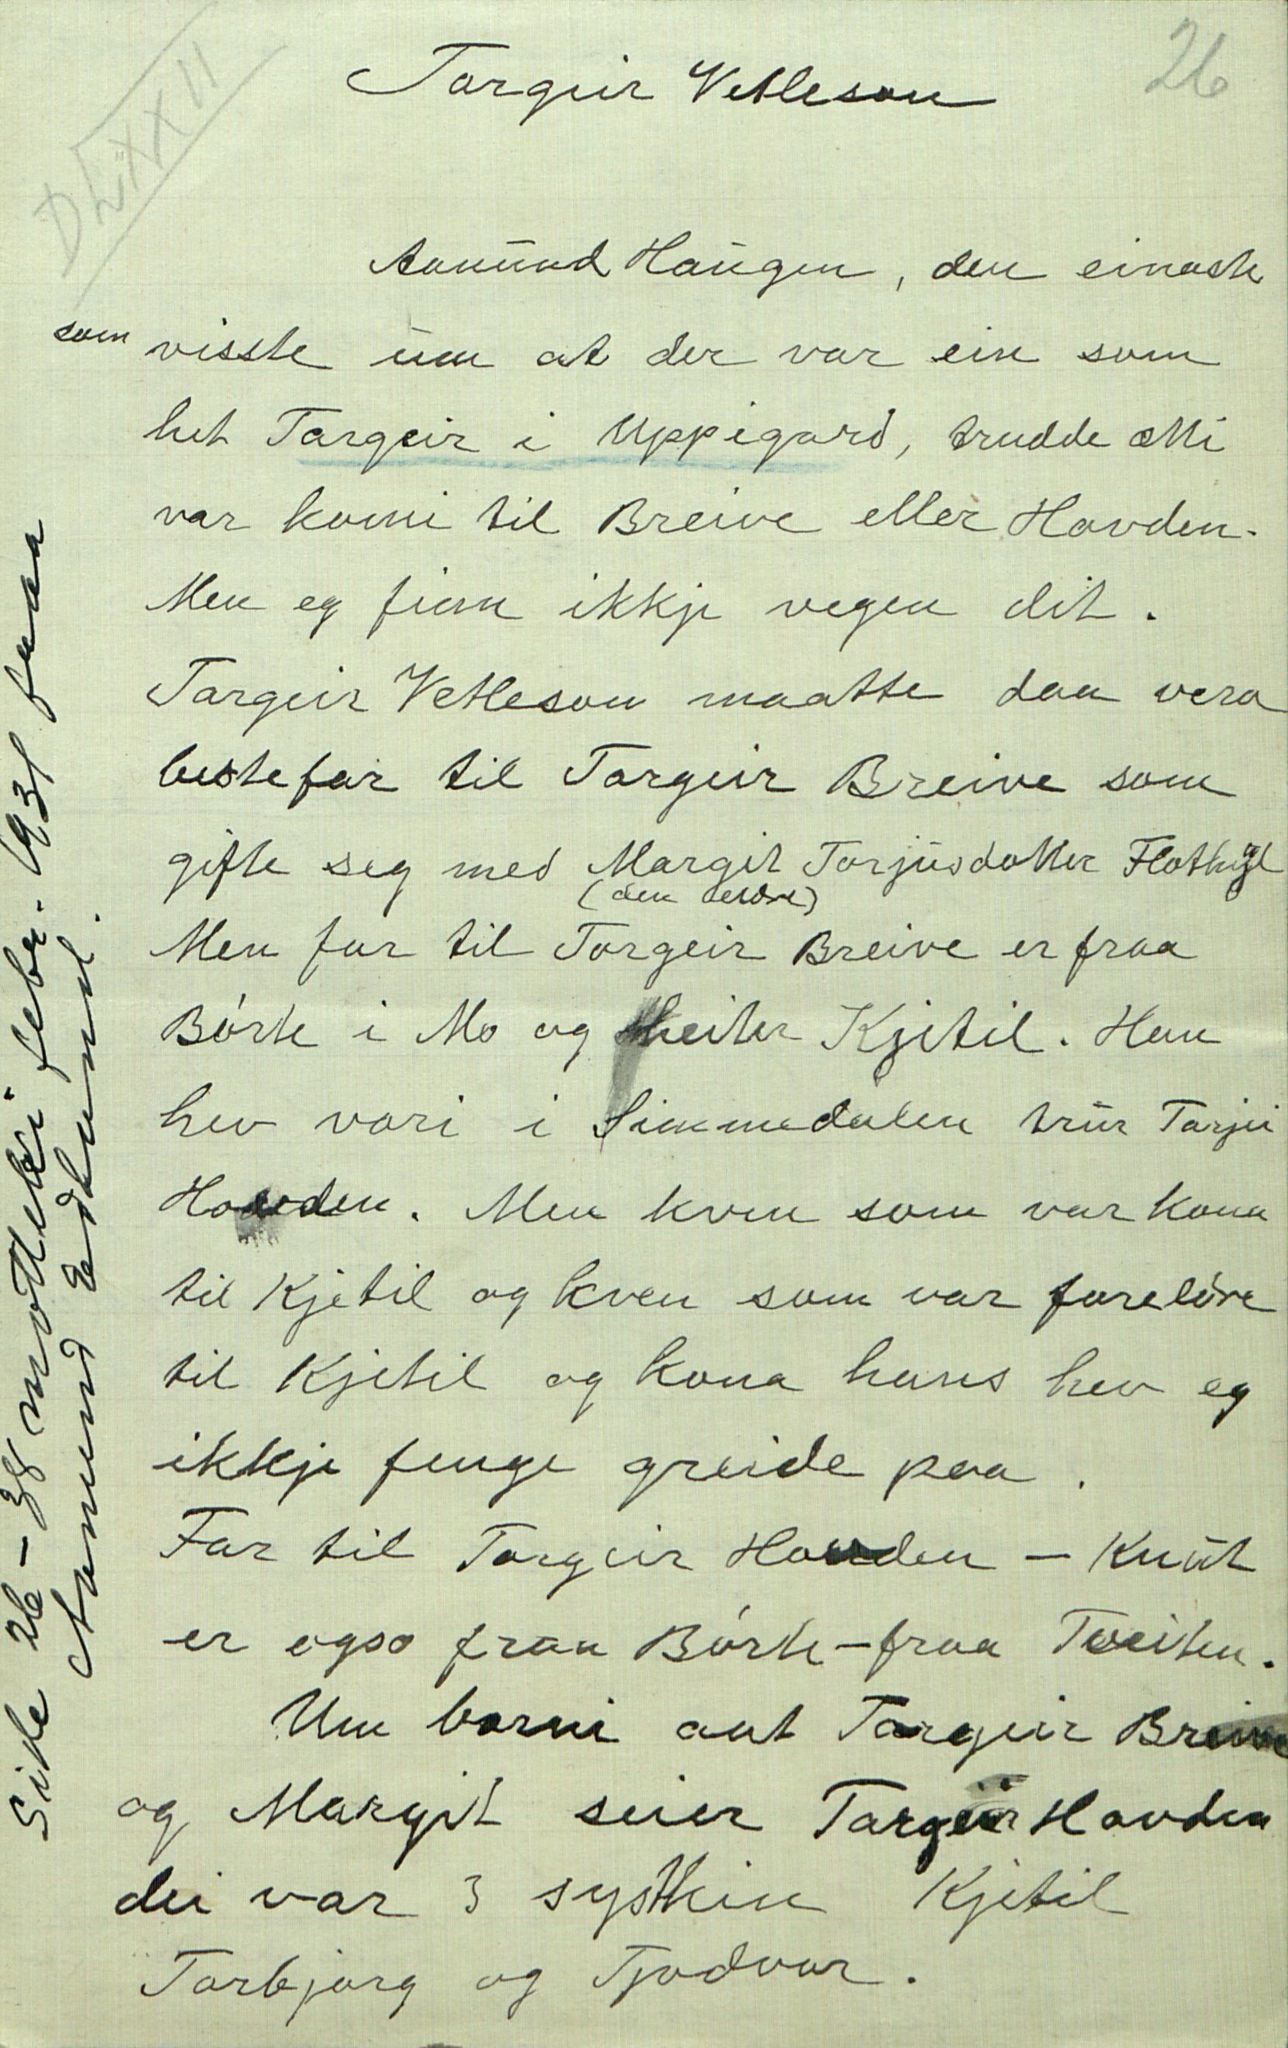 26
DLXXII
Torgeir Vetleson
Aamund Haugen, den einaste
som visste um at der var ein som
het Targeir i Uppigard, trudde ætti
var komi til Breive eller Hovden.
Men eg finn ikkje vegen dit.
Targeir Vetleson maatte daa vera
bestefar til Torgeir Breive som
gifte seg med Margit Torjusdotter Flothyl
(den eldre)
Men far til Torgeir Breive er fraa
Börte i Mo og heiter Kjetil. Han
hev vori i Simmedalen trur Tarjei
Hovden. Men kven som var kona
til Kjetil og kven som var foreldre
til Kjetil og kona hans hev eg
ikkje fenge greide paa.
Far til Torgeir Hovden – Knut
er ogso fraa Börte – fraa Tveiten.
Um borni aat Targeir Breive
og Margit seier Targeir Hovden
dei var 3 systkin Kjetil
Torbjorg og Tjodvor.
Side 26–38 motteki i febr. 1931 fraa
Aamund Edland.